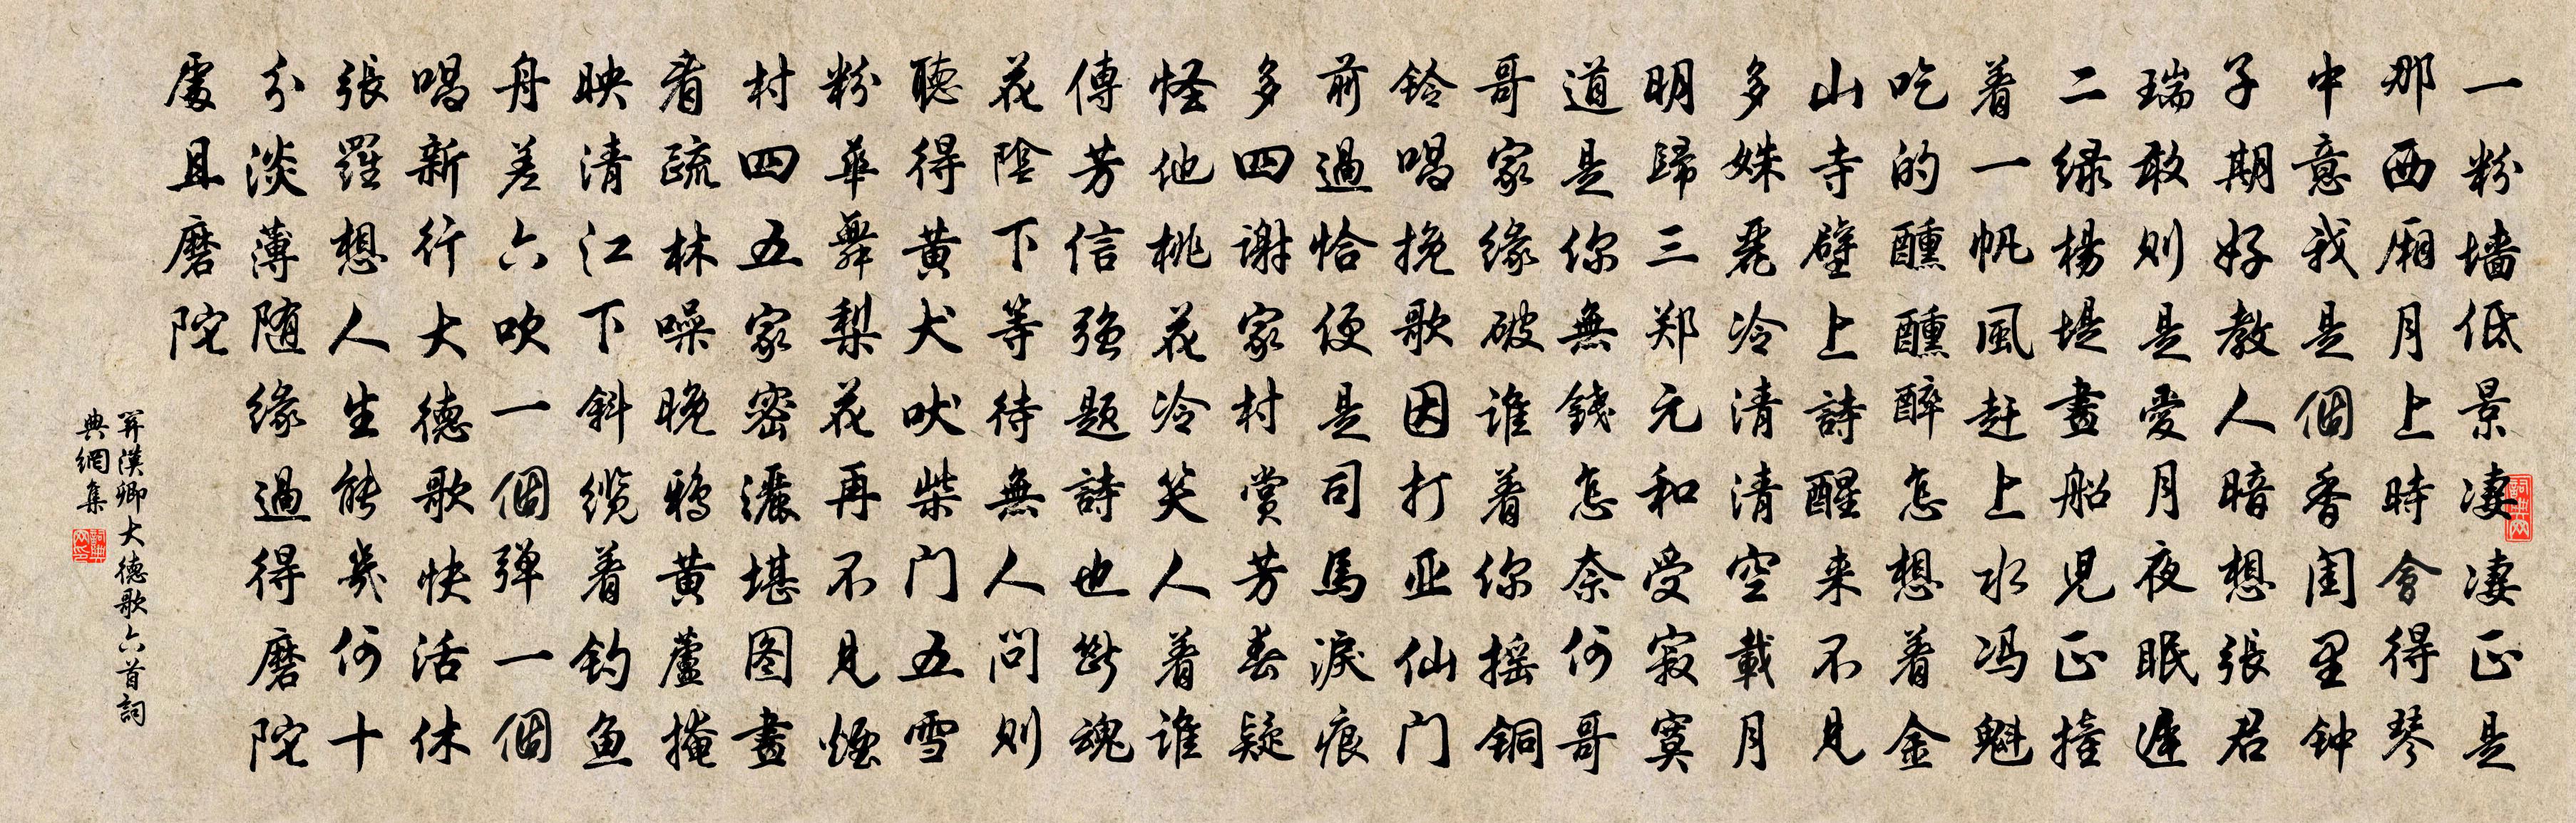 一粉墙低景凄凄正是
那西厢月上時會得琴
中意我是個香閨里钟
子期好教人暗想張君
瑞敢则是愛月夜眠遲
二绿楊堤畫船兒正撞
着一帆風赶上水冯魁
吃的醺醺醉怎想着金
山寺壁上詩醒来不見
多姝麗冷清清空載月
明歸三郑元和受寂寞
道是你無錢怎奈何哥
哥家缘破谁着你摇铜
铃唱挽歌因打亚仙门
前過恰便是司馬淚痕
多四谢家村赏芳春疑
怪他桃花冷笑人着谁
傳芳信强题詩也斷魂
花陰下等待無人問则
聽得黄犬吠柴门五雪
粉華舞梨花再不見煙
村四五家密灑堪图畫
看疏林噪晚鸦黄蘆掩
映清江下斜缆着钓鱼
舟差六吹一個弹一個
唱新行大德歌快活休
張羅想人生能幾何十
分淡薄随缘過得磨陀
處且磨陀
關漢卿大德歌六首詞
典網集